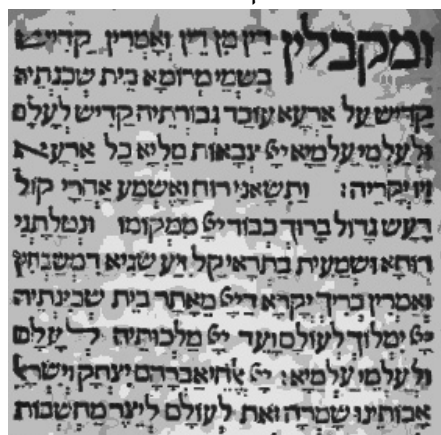 ומקבלין דין מן דין ואמרין קדיש
בשמי מרומא בית שכנתיה
קדיש על ארעא עובד גבורתיה קדיש לעלם
ולעלמי עלמיא יי צבאות מליא כל ארעא
זיו יקריה: ותשאני רוח ואשמע אחרי קול
רעש גדול ברוך כבוד יי ממקומו ונטלתני
רוחא ושמעית בתראי קל זיע שגיא דמשבחין
ואמרין בריך יקרא דיי מאתר בית שכינתיה
יי ימלוך לעולם ועד יי מלכותיה לעלם
ולעלמי עלמיא: יי אלהי אברהם יצחק וישראל
אבותינו שמרה זאת לעולם ליצר מחשבות